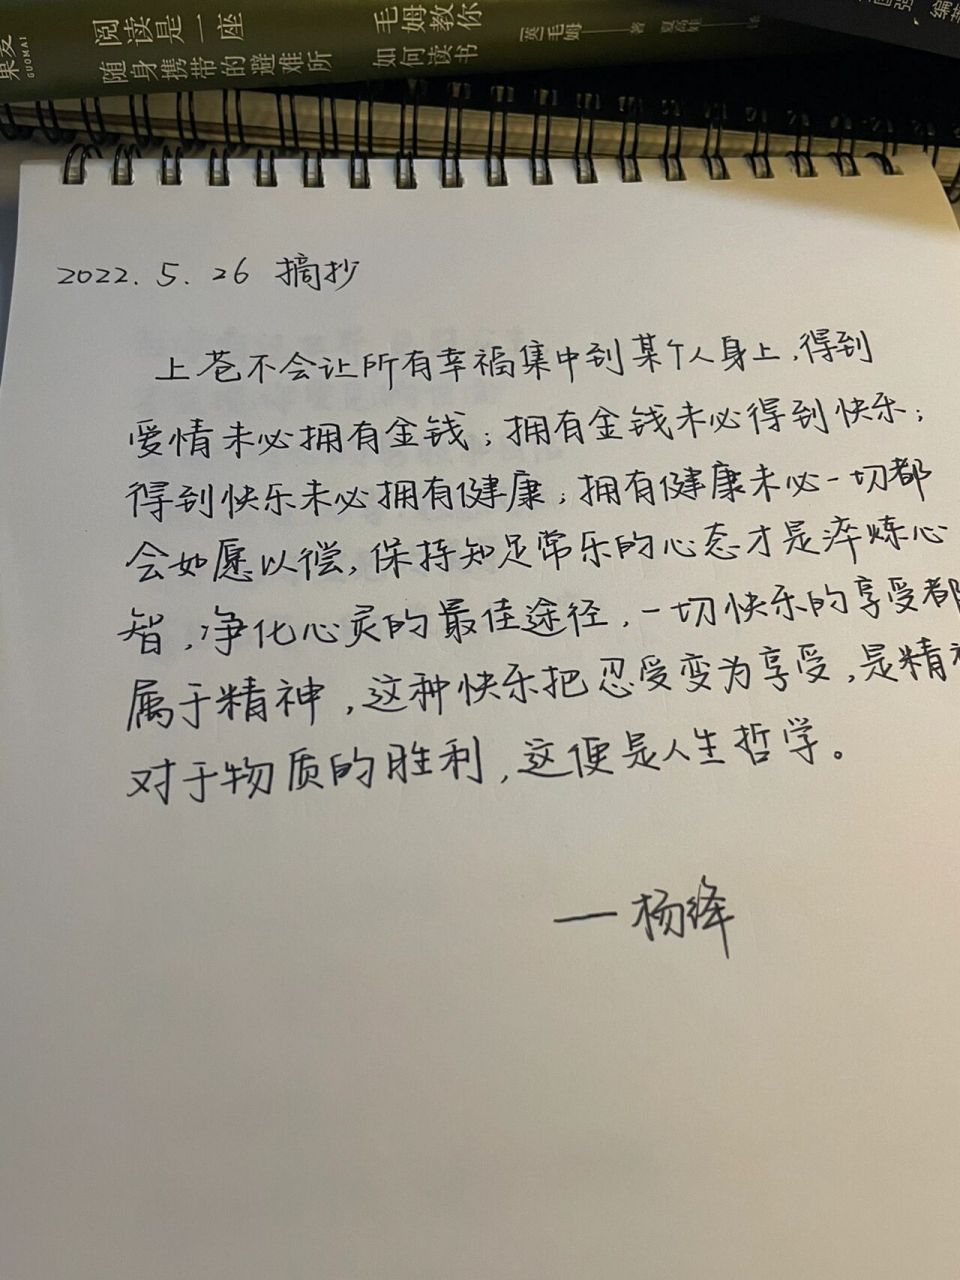 果麦
GUOMAI
阅读是一座
随身携带的避难所
毛姆教你
如何读书
毛姆
著
译
编
2022.5.26 摘抄
上苍不会让所有幸福集中到某个人身上,得到
爱情未必拥有金钱;拥有金钱未必得到快乐;
得到快乐未必拥有健康;拥有健康未必一切都
会如愿以偿,保持知足常乐的心态才是淬炼心
智,净化心灵的最佳途径,一切快乐的享受都
属于精神,这种快乐把忍受变为享受,是精神
对于物质的胜利,这便是人生哲学。
—杨绛